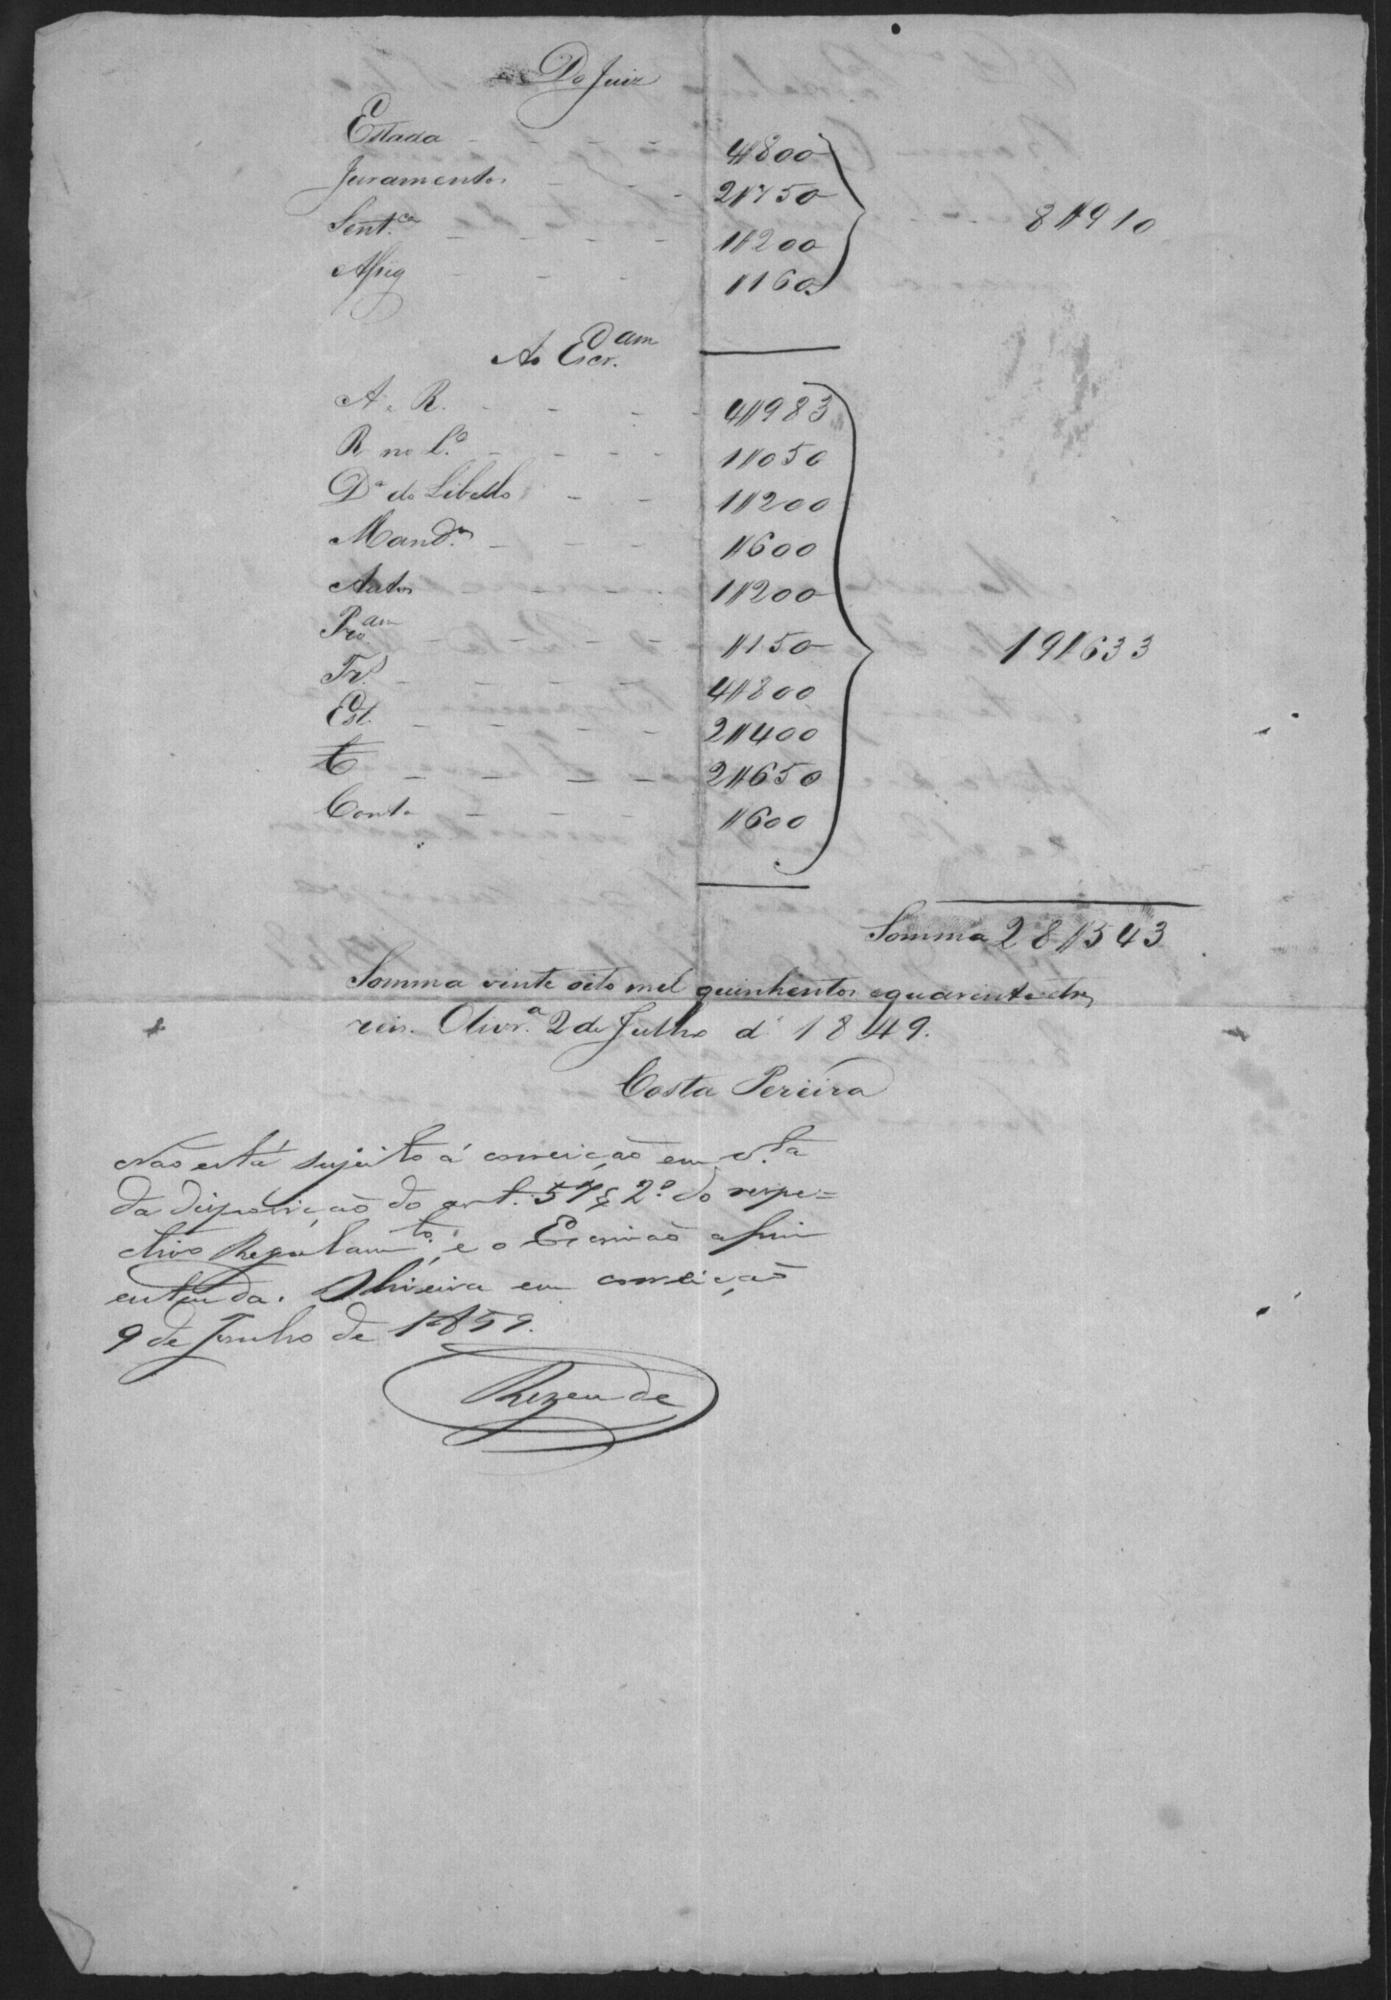 Do Juiz
Estada - - - - 4$800
Juramentos - - - 2$750
Sent.ça - - - - - 1$200
Assig - - - $160
8$910
Ao Escr.am
A. e R. - - - - 4$983
R. no L.º - - - - 1$050
D.ª do Libello - - 1$200
Mand.os - - - $600
Autos - - - 1$200
$150
- - - - 4$800
Est. - - - - 2$400
C - - - - 2$650
Conta - - - - $600
19$633
Somma 28$543
Somma vinte oito mil quinhentos e quarenta e tres
reis. Olivr.ª 2 de Julho d' 1849.
Costa Pereira
Não está sujeito á correição em v.ta
da disposição do art. 57 § 2º do respe=
ctivo Regulam.to, e o Escrivão assim
entenda. Oliveira em correição
9 de Junho de 1859.
Rezende